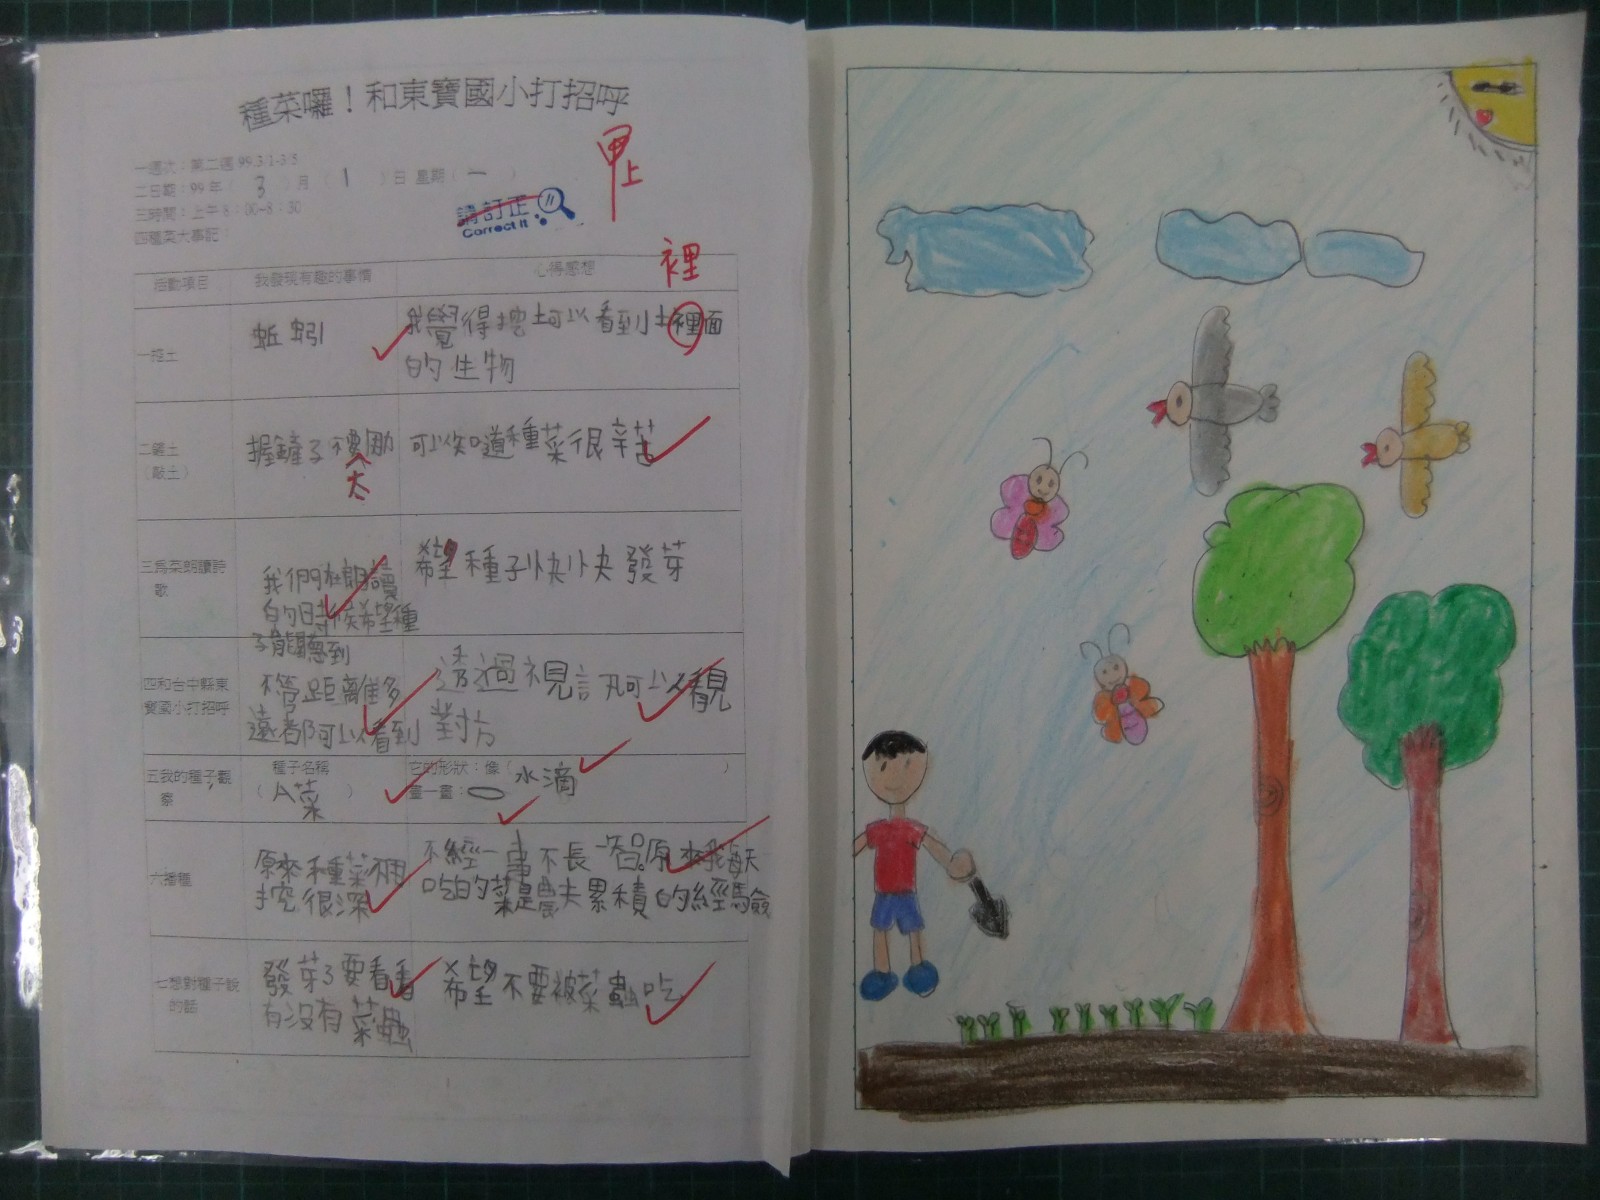 種菜囉！和東寶國小打招呼
甲上
一週次：第二週 99.3/1-3/5
二日期：99年（ 3 ）月（ 1 ）日 星期（ 一 ）
三時間：上午 8：00~8：30
四種菜大事記：
請訂正
Correct It
裡
活動項目 我發現有趣的事情 心得感想
一挖土
蚯蚓
我覺得挖土可以看到土裡面
的生物
二鏟土
（敲土）
握鏟子不要用力
太
可以知道種菜很辛苦
三為菜朗讀詩
歌
我們在朗讀
的時候希望種
子能聽到
希望種子快快發芽
四和台中縣東
寶國小打招呼
不管距離多
遠都可以看到
透過視訊可以看見
對方
五我的種子觀
察
種子名稱
（A菜）
它的形狀：像（水滴）
畫一畫：
六播種
原來種菜不用
挖很深
不經一事不長一智。原來我每天
吃的菜是農夫累積的經驗
七想對種子說
的話
發芽了要看看
有沒有菜蟲
希望不要被菜蟲吃
1